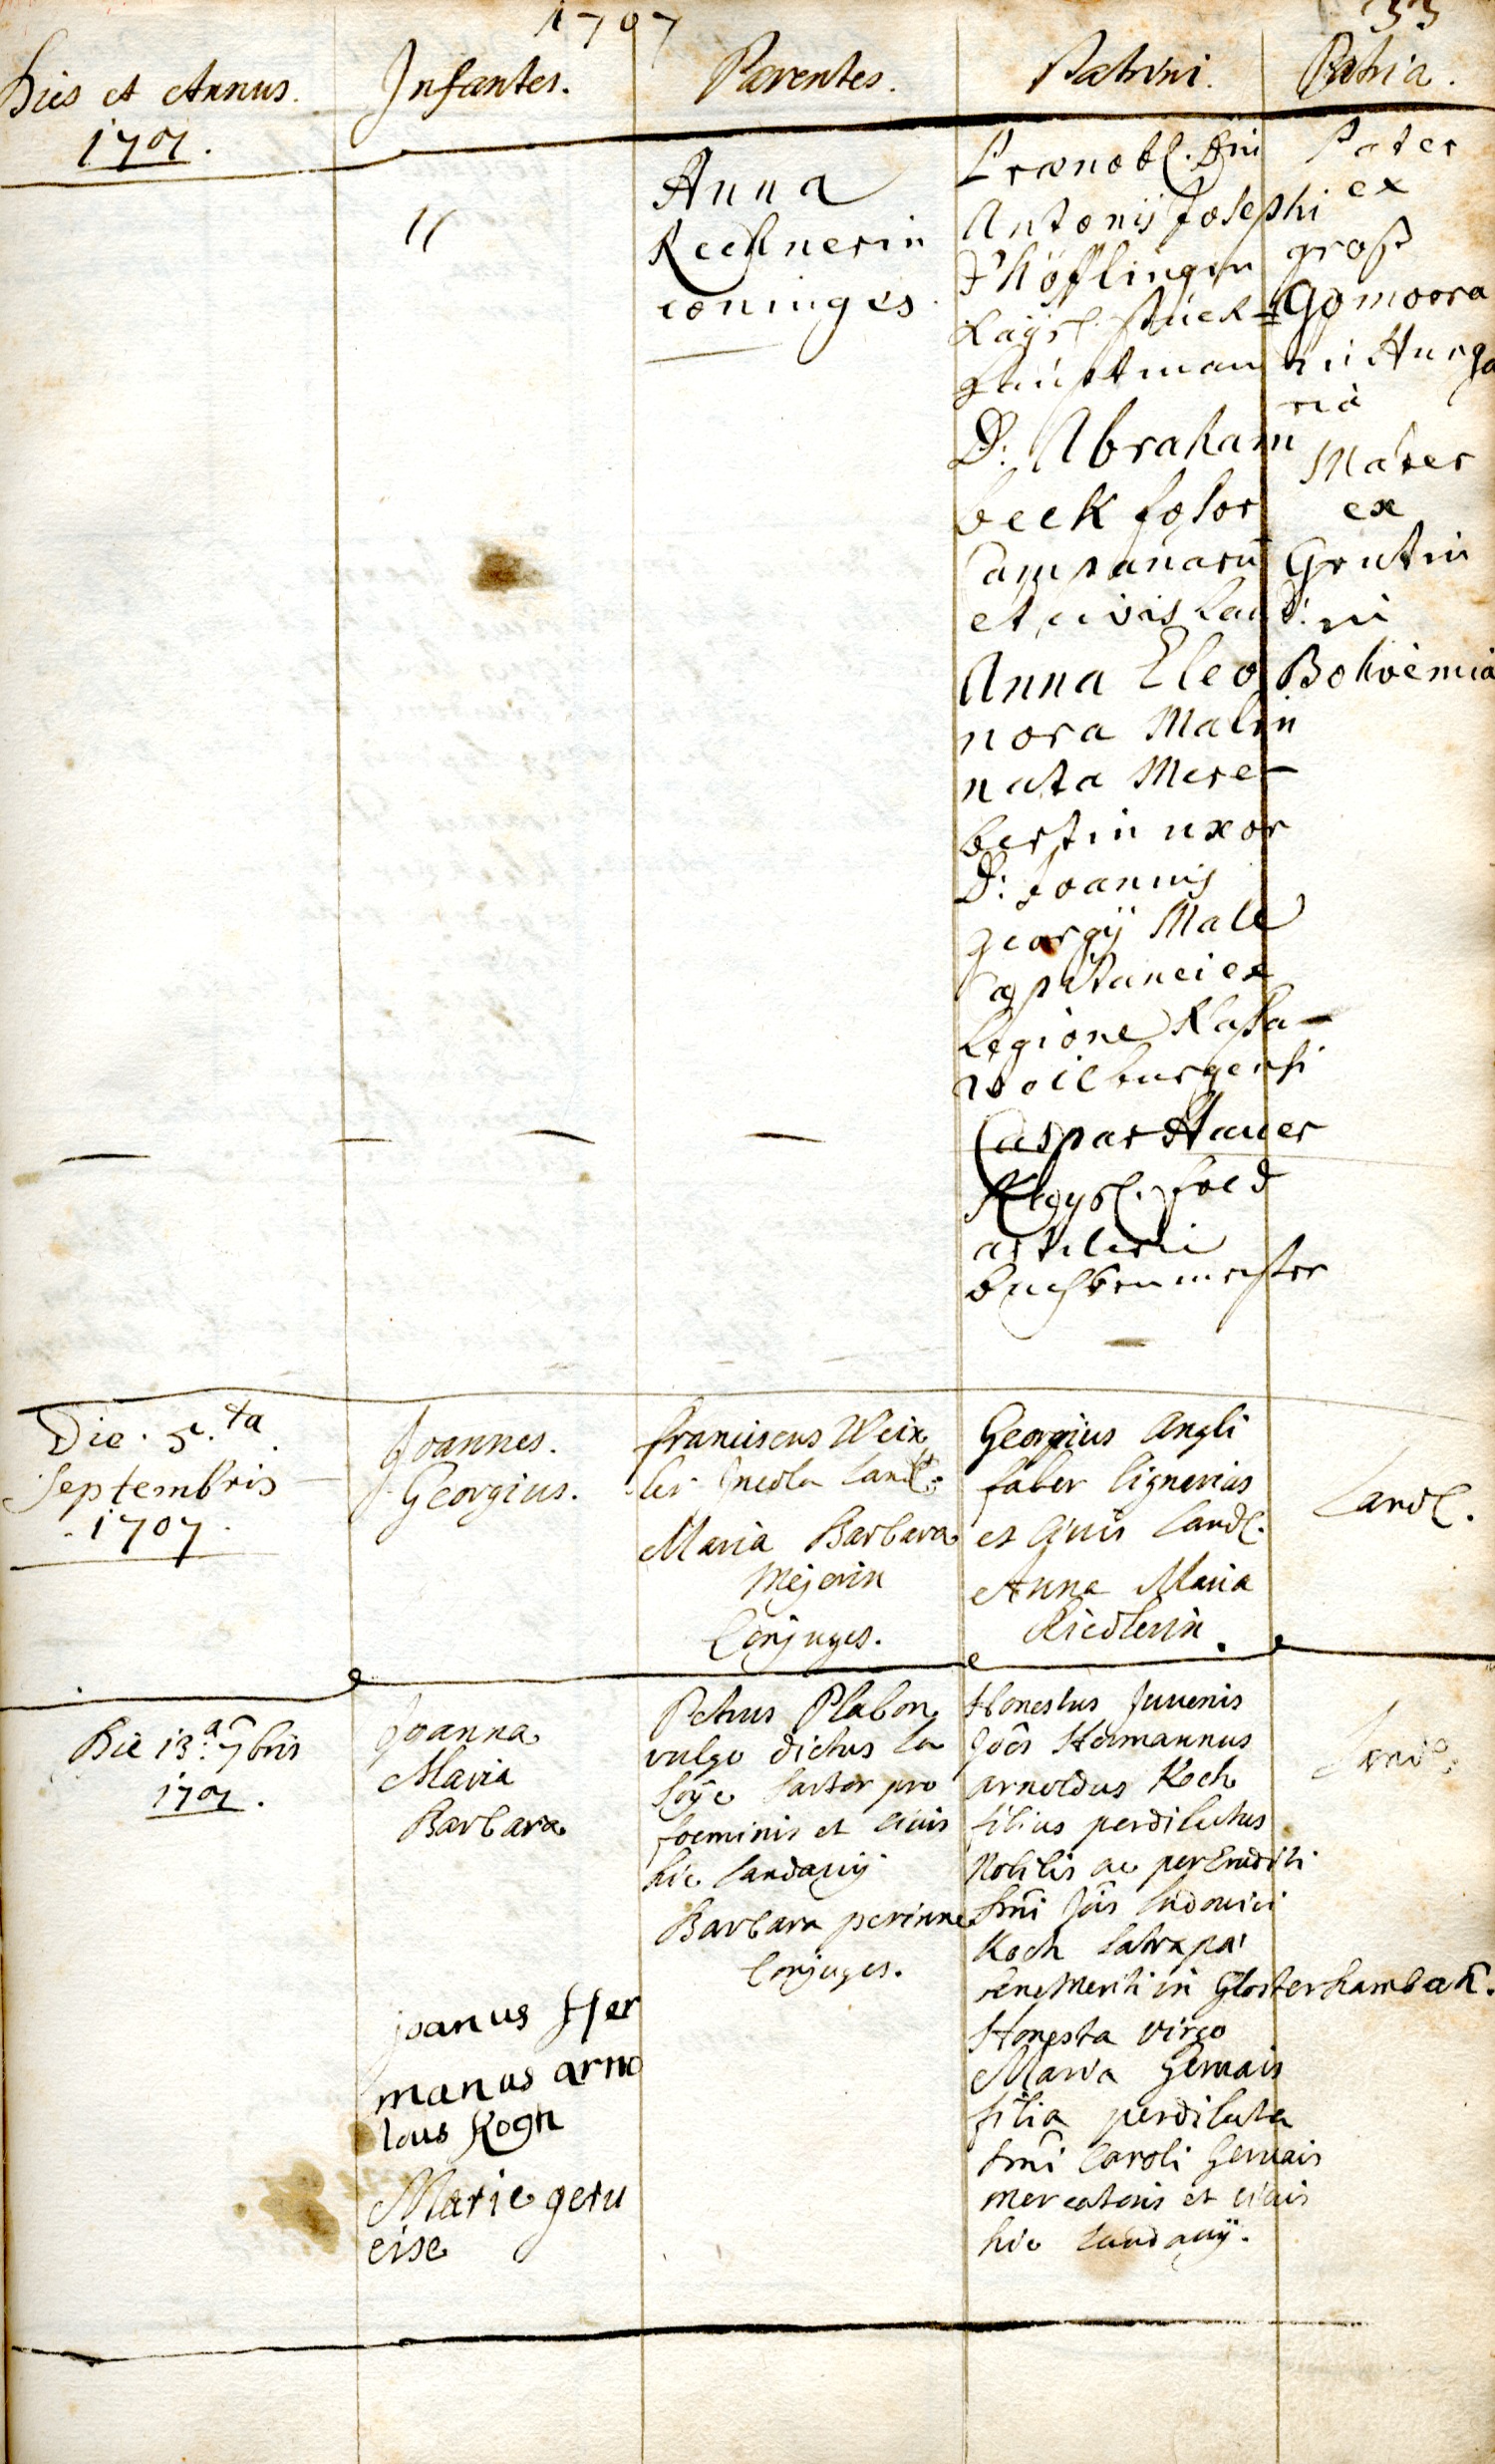 1707
33
Dies et Annus.
Infantes.
Parentes.
Patrini.
Patria.
1707.
Anna
Rechnerin
coniuges.
Prænobl. Dni
Antonij Josephi
Höfflinger
Kaÿsl. stuck=
haubtman
D: Abraham
beck fosor
Campanarū
et civis Laud:
Anna Eleo
nora Malin
nata Mere-
bertin uxor
D: Joannis
georgij Male
Capitanei ex
Legione Nassa-
weilburgensi
Caspar Hauer
Kaysl. feld
artilerie
buchsenmeister
Pater
ex
groß
Gomoora
in Hunga
riâ
Mater
ex
in
Bohoemiâ
Die. 5.ta
Septembris
1707.
Joannes.
Georgius.
Franciscus Weix
ler Incola Land.
Maria Barbara
Meyerin
Conjuges.
Georgius Angli
faber lignerius
et Civis Landl.
Anna Maria
Riedlerin.
Landl.
Die 13.a 7bris
1707.
Joanna
Maria
Barbara
joanus Her
manus arno
laus Kogh
Marie geru
eise
Petrus Plabon
vulgo dictus la
Joÿe sartor pro
foeminis et civis
hic Landavij
Barbara perinne
Conjuges.
Honestus Juvenis
Joês Hermannus
Arnoldus Koch
filius perdilectus
Nobilis ac perEruditi
Dni Jois Ludovici
Koch Satrapa
benemeriti in Closterhambach.
Honesta virgo
Maria Gervais
filia perdilecta
Dni Caroli Gervais
Mercatoris et civis
hic Landavij.
Land.